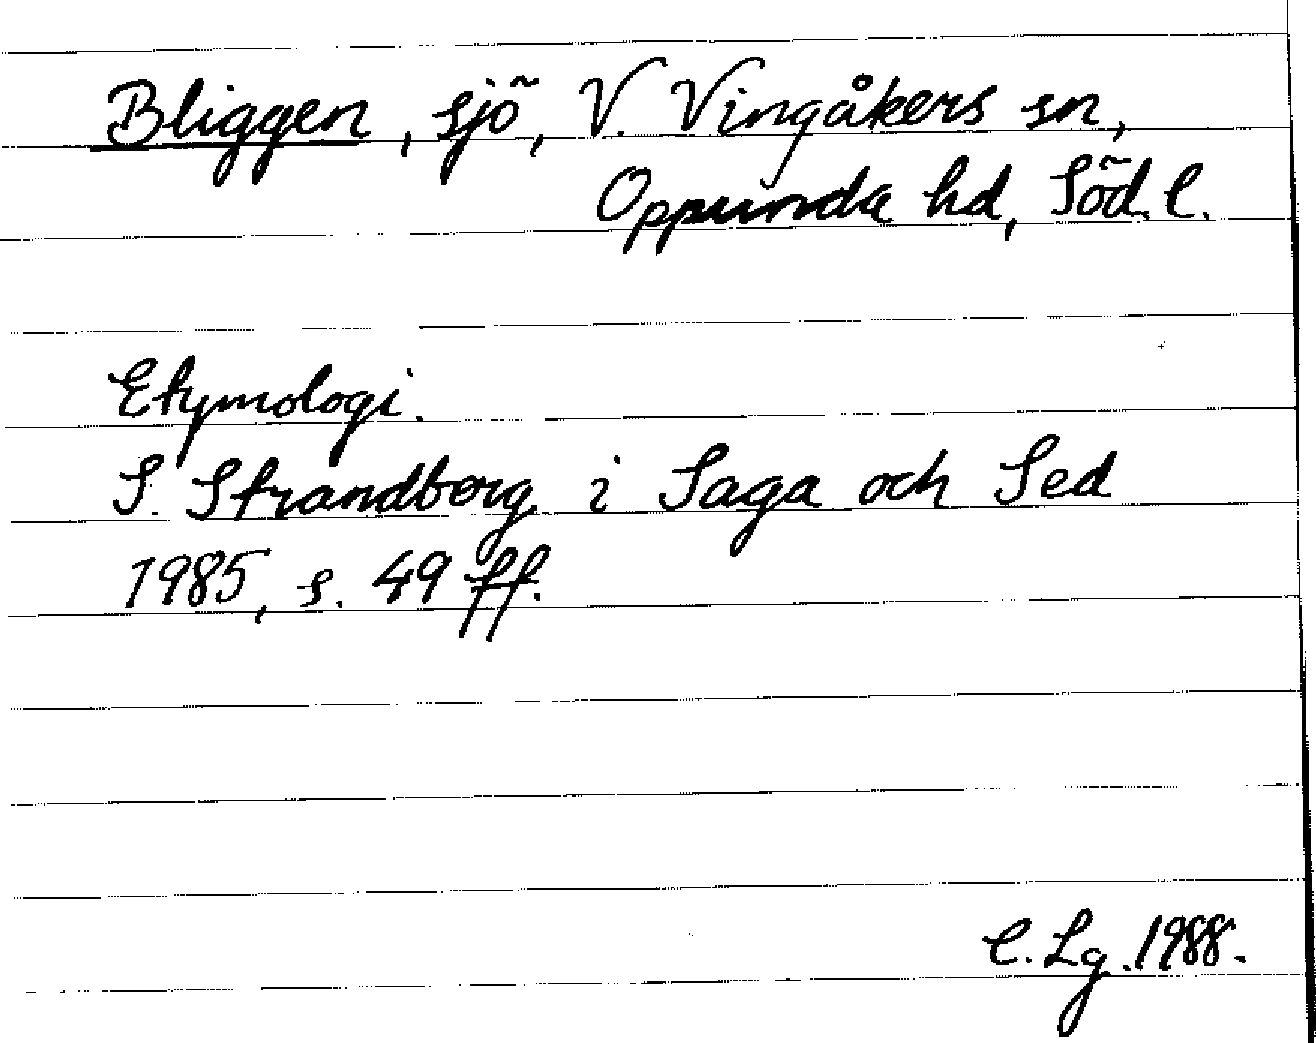 Bliggen, sjö, V. Vingåkers sn,
Oppunda hd, Söd. l.
Etymologi.
S. Strandberg i Saga och Sed
1985, s. 49 ff.
C. Lg. 1988.